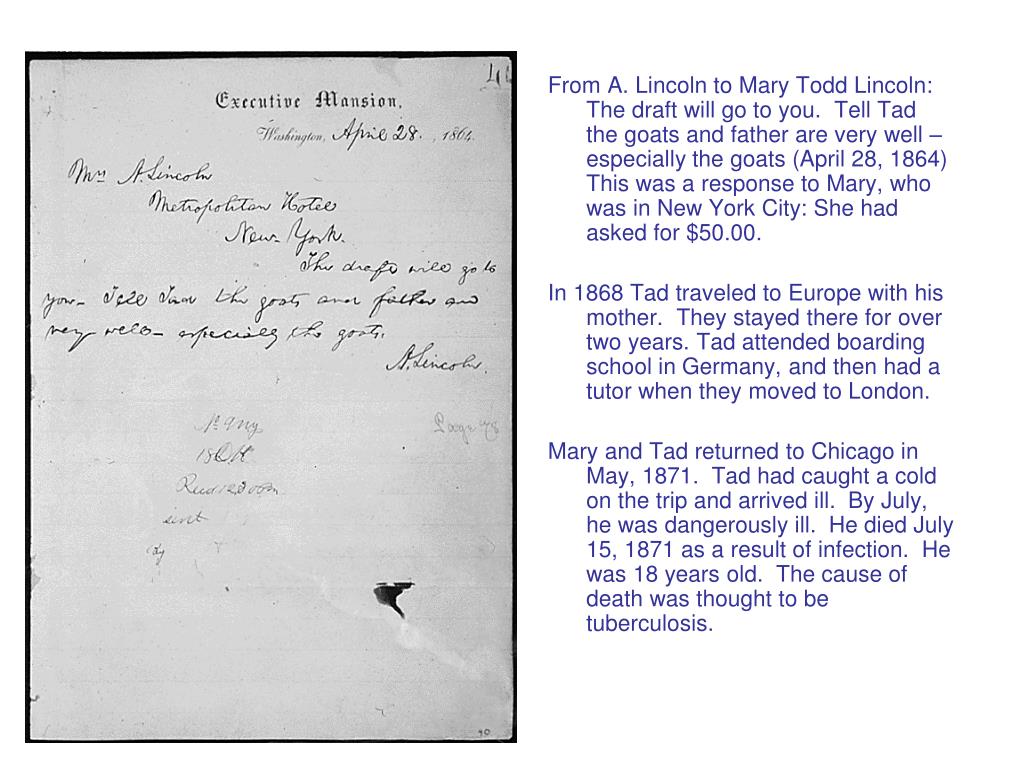 Executive Mansion,
Washington, April 28. , 1864.
Mrs A. Lincoln
Metropolitan Hotel
New-York.
The draft will go to
you- Tell Tad the goats and father are
very well- especially the goats.
A. Lincoln.
From A. Lincoln to Mary Todd Lincoln:
The draft will go to you. Tell Tad
the goats and father are very well –
especially the goats (April 28, 1864)
This was a response to Mary, who
was in New York City: She had
asked for $50.00.
In 1868 Tad traveled to Europe with his
mother. They stayed there for over
two years. Tad attended boarding
school in Germany, and then had a
tutor when they moved to London.
Mary and Tad returned to Chicago in
May, 1871. Tad had caught a cold
on the trip and arrived ill. By July,
he was dangerously ill. He died July
15, 1871 as a result of infection. He
was 18 years old. The cause of
death was thought to be
tuberculosis.